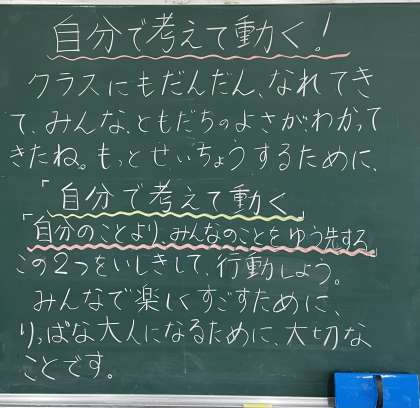 自分で考えて動く!
クラスにもだんだん、なれてき
て、みんな、ともだちのよさが、わかって
きたね。もっとせいちょうするために、
「自分で考えて動く
「自分のことより、みんなのことをゆう先する」
この2つをいしきして、行動しよう。
みんなで楽しくすごすために、
りっぱな大人になるために、大切な
ことです。